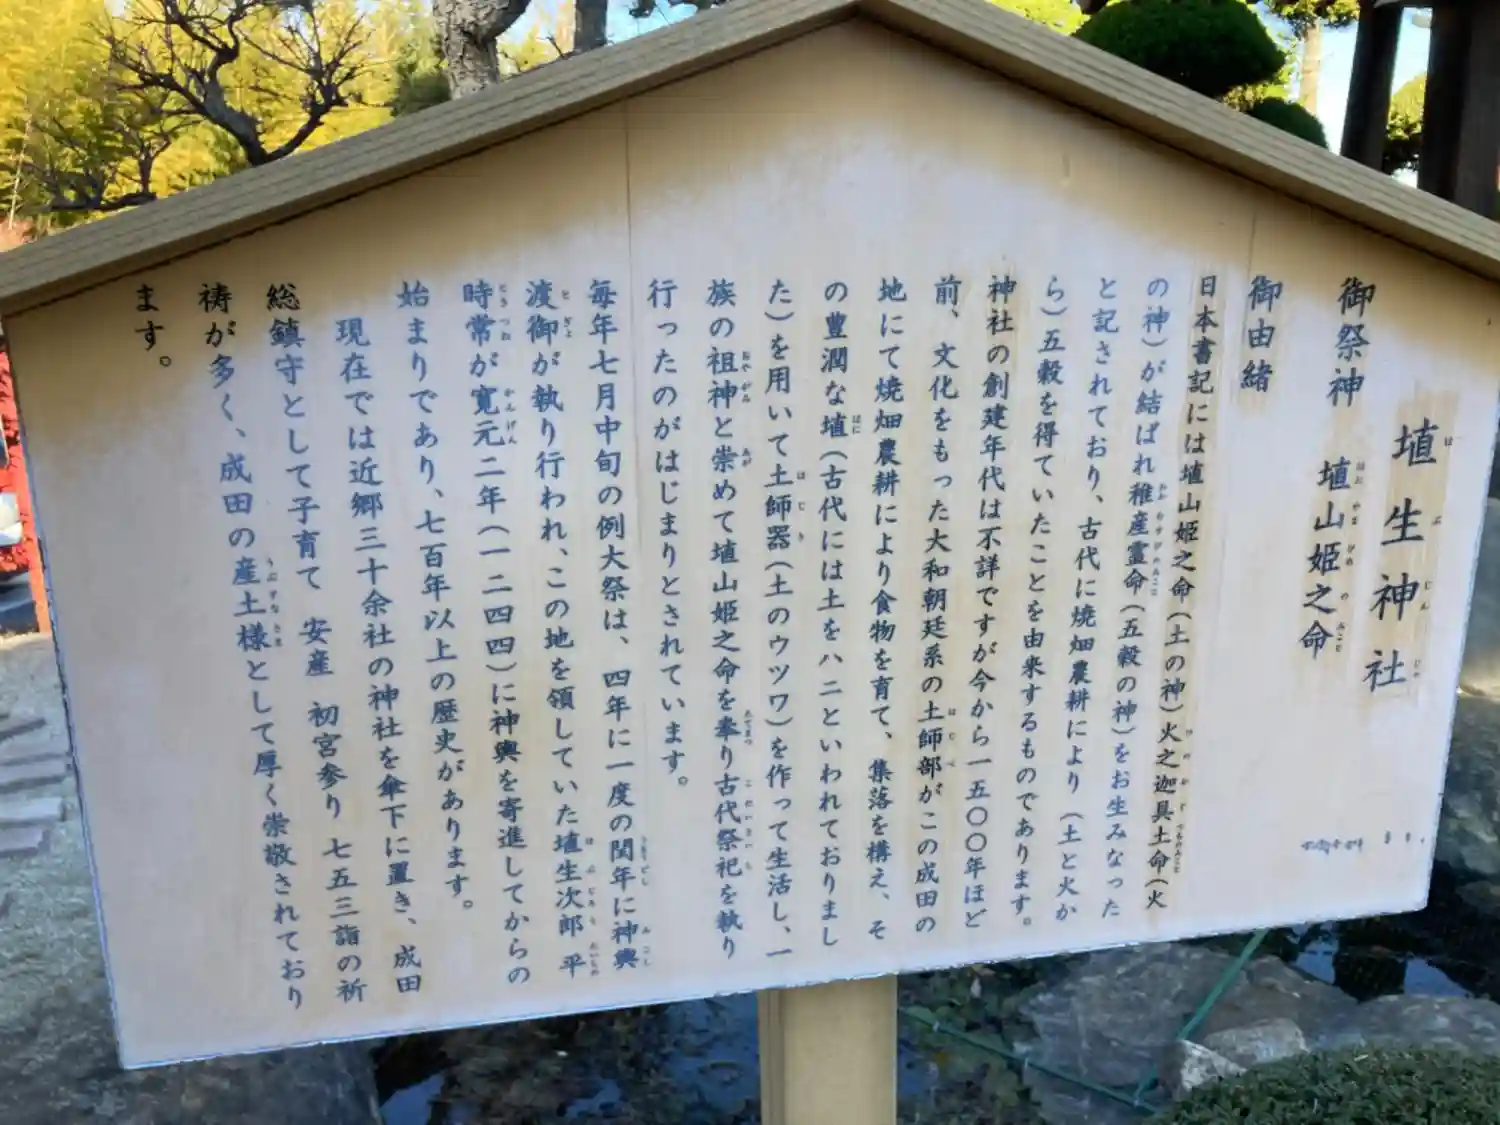 埴生神社
御祭神 埴山姫之命
御由緒
日本書記には埴山姫之命（土の神）火之迦具土命（火
の神）が結ばれ稚産霊命（五穀の神）をお生みなった
と記されており、古代に焼畑農耕により（土と火か
ら）五穀を得ていたことを由来するものであります。
神社の創建年代は不詳ですが今から一五〇〇年ほど
前、文化をもった大和朝廷系の土師部がこの成田の
地にて焼畑農耕により食物を育て、集落を構え、そ
の豊潤な埴（古代には土をハニといわれておりまし
た）を用いて土師器（土のウツワ）を作って生活し、一
族の祖神と崇めて埴山姫之命を奉り古代祭祀を執り
行ったのがはじまりとされています。
毎年七月中旬の例大祭は、四年に一度の閏年に神輿
渡御が執り行われ、この地を領していた埴生次郎 平
時常が寛元二年（一二四四）に神輿を寄進してからの
始まりであり、七百年以上の歴史があります。
現在では近郷三十余社の神社を傘下に置き、成田
総鎮守として子育て 安産 初宮参り 七五三詣の祈
祷が多く、成田の産土様として厚く崇敬されており
ます。